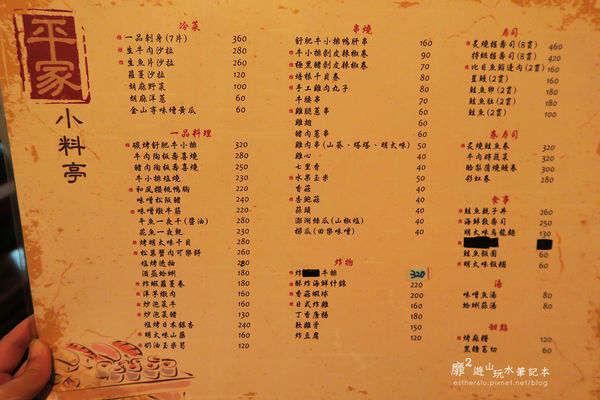 平家
小料亭
冷菜
一品刺身(7片) 360
生牛肉沙拉 280
生魚片沙拉 260
蘿蔓沙拉 120
胡麻野菜 100
胡麻洋蔥 60
金山寺味增黃瓜 60
一品料理
碳烤舒肥牛小排 320
牛肉陶板壽喜燒 280
豬肉陶板壽喜燒 250
牛小排塩燒 230
和風櫻桃鴨胸 220
味噌松阪豬 240
味噌燉牛筋 220
牛魚一夜干(醬油) 280
花魚一夜乾 220
烤明太味干貝 280
松葉蟹肉可樂餅 260
塩烤透抽 280
酒蒸蛤蜊 180
炸蝦蘿蔓卷 180
洋芋燉肉 180
炒泡菜牛 180
炒泡菜豬 130
塩烤日本銀杏 240
明太味山藥 180
奶油玉米筍 120
串燒
舒肥牛小排鴨肝串 160
牛小排剝皮辣椒卷 90
極黑豬剝皮辣椒卷 70
培根干貝卷 80
手工雞肉丸子 80
牛腰串 80
雞腿蔥串 60
雞翅 60
豬肉蔥串 60
雞肉串(山葵、塔塔、明太味) 50
雞心 40
七里香 40
水果玉米 50
香菇 40
杏鮑菇 40
蒜頭 40
澎湖絲瓜(山椒塩) 40
櫛瓜(田樂味噌) 40
炸物
炸 牛排 320
酥炸海鮮什錦 220
香菇蝦球 200
日式炸雞 210
丁香唐揚 180
軟雞骨 150
炸豆腐 120
壽司
炙燒握壽司(8貫) 460
特級握壽司(8貫) 420
比目魚鰭邊肉(2貫) 160
星鰻(2貫)
鮭魚卵(2貫) 180
鮭魚肚(2貫) 180
鮭魚(2貫) 100
卷壽司
炙燒鮭魚卷 300
牛肉時蔬菜 320
酪梨蒲燒鰻卷 300
彩虹卷 280
食事
鮭魚親子丼 260
海鮮散壽司 250
明太味烏龍麵 130
鮭魚飯團 60
明太味飯糰 60
湯
味噌魚湯 80
蛤蜊蒜湯 80
甜點
烤麻糬 120
黑糖葛切 60
靡²遊山玩水筆記本
esther6lu.pixnet.net/blog